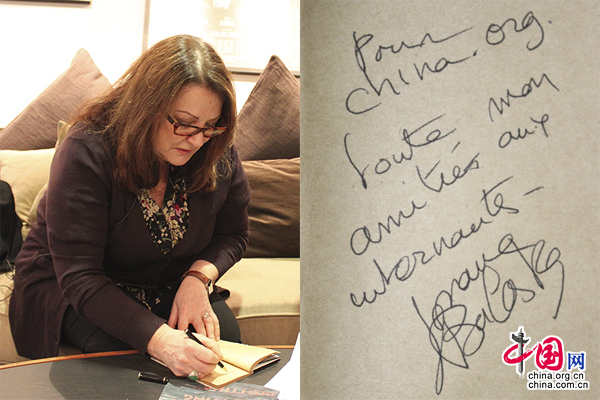 Pour
china.org.
Toute mon
amitiés aux
internautes-
Josiane
Balasko
中国网
china.org.cn
china.com.cn